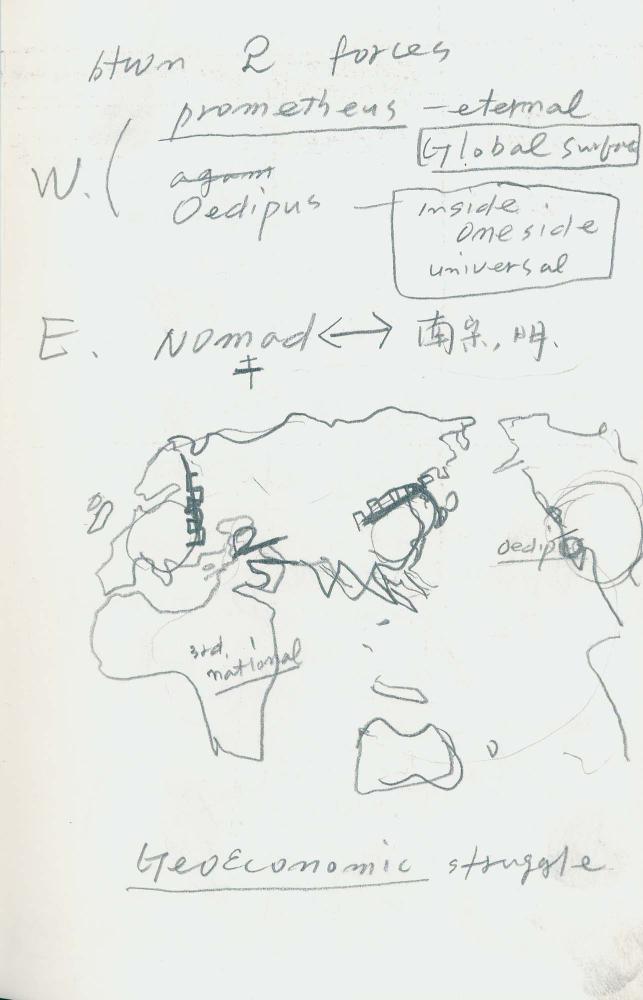 btwn 2 forces
prometheus - eternal
Global surface
W. (
again
Oedipus - inside
one side
universal
E. Nomad ↔ 南宋, 明.
キ
Oedip
3rd.
national
GeoEconomic struggle